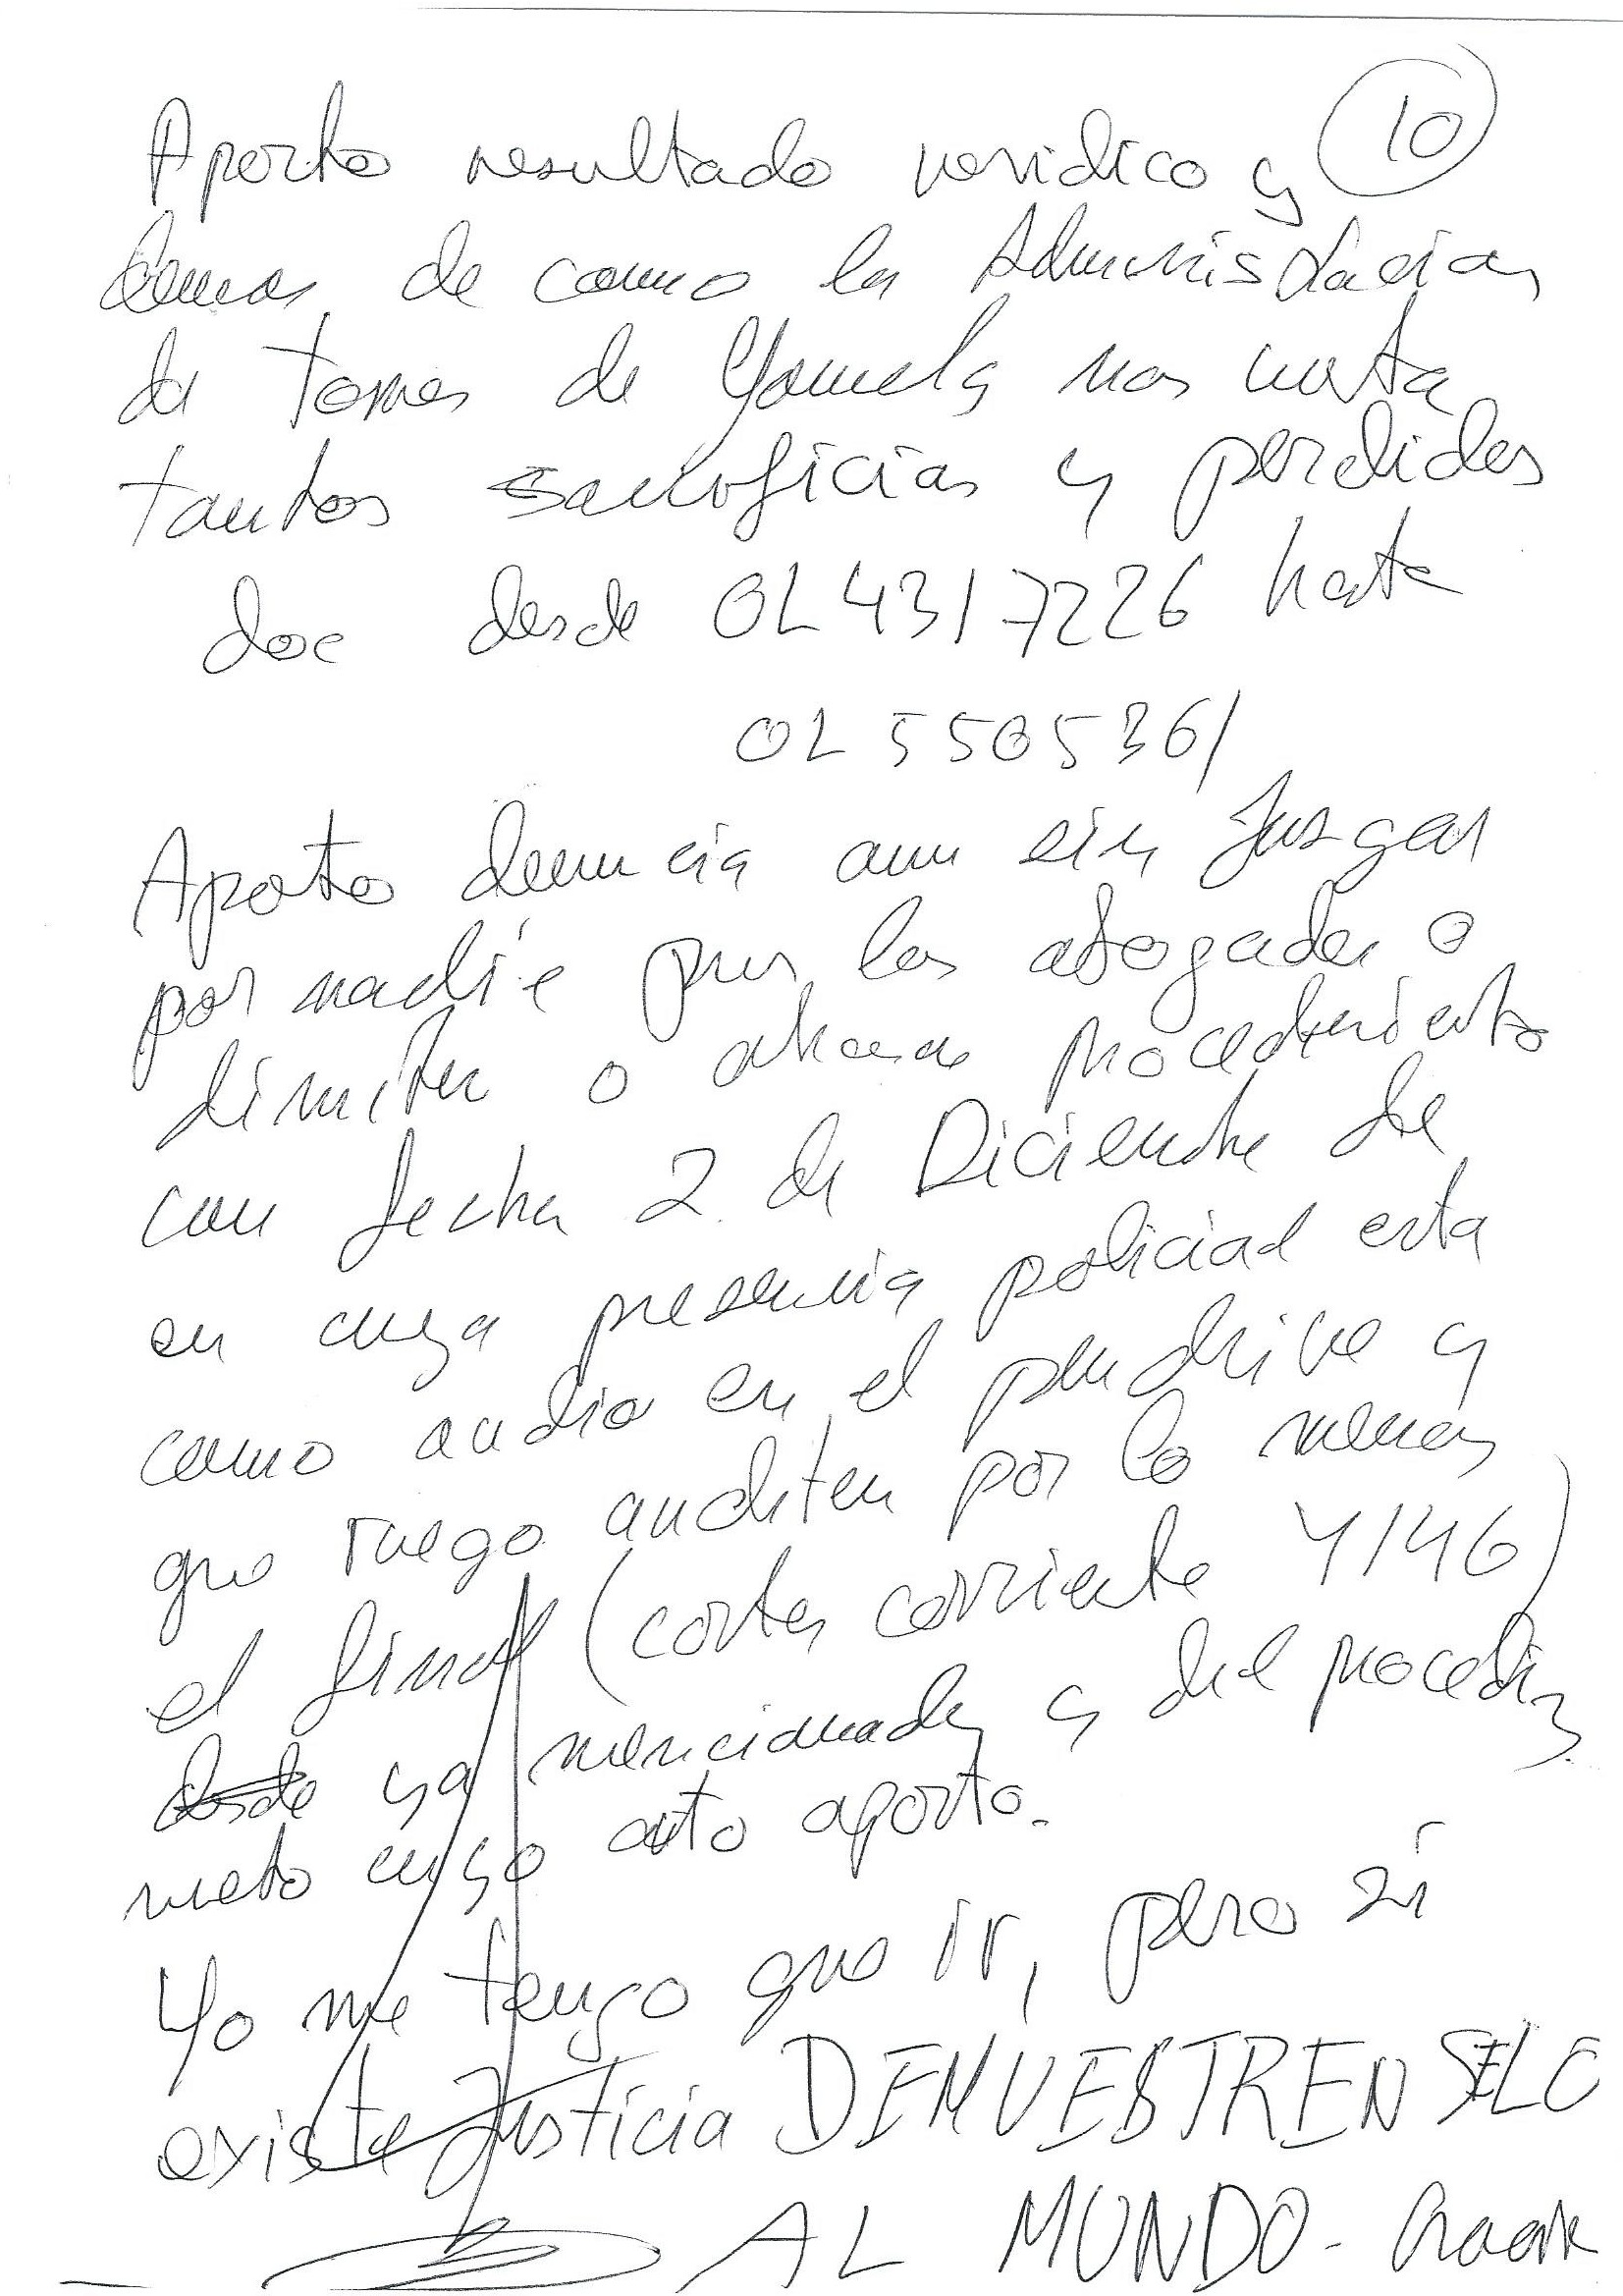 10
Aporto resultado veridico y
demas de como la Administracion
da tomas de nos
tantos sacrificios y perdidas
doc desde OL 4317226 hasta
OL 5505361
Aporto denuncia aun sin Jusgar
por nadie pues los abogados o
dimiten o procedimiento
con fecha 2 de Diciembre de
en cuya presencia policial esta
como audio en el pendrive y
que ruego auditen por lo menos
el final (cortes corriente 4146)
desde ya mencionada y del procedi
mieto cuyo auto aporto.
Yo me tengo que ir, pero si
existe Justicia DEMUESTRENSELO
AL MUNDO.